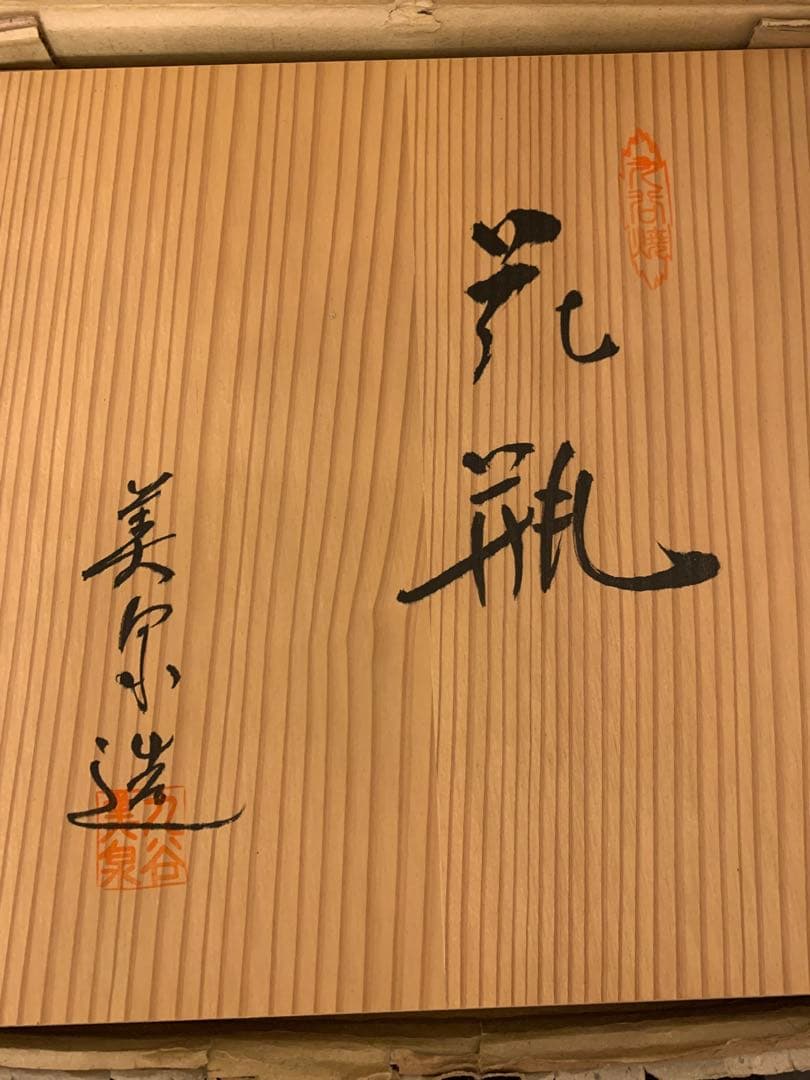 九谷焼
花瓶
美泉造
九谷
美泉